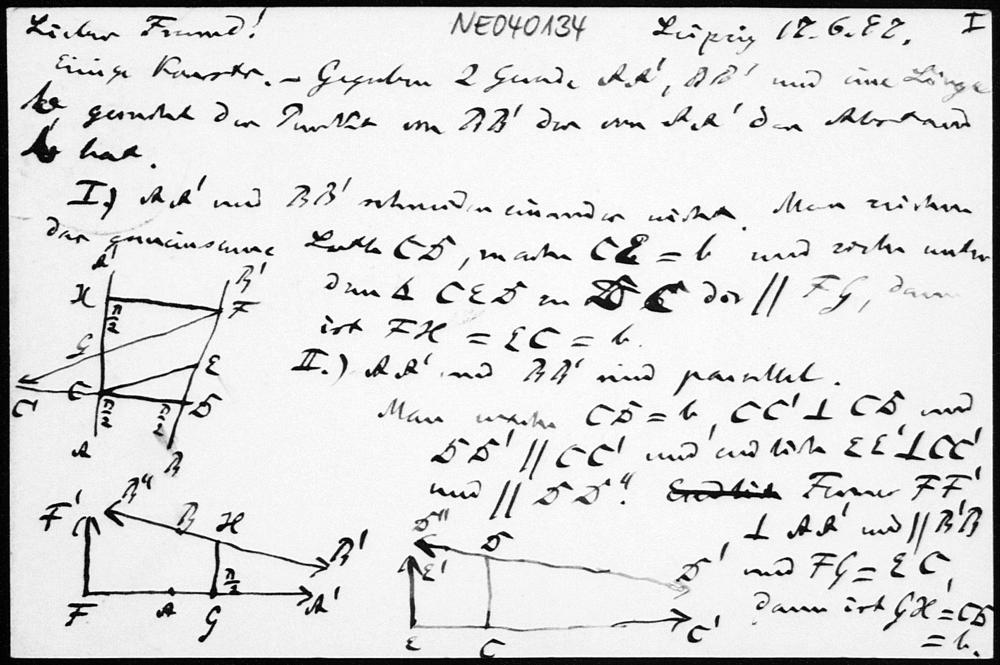 Lieber Freund! NE040134 Leipzig 17.6.87. I
Einige Konstr. – Gegeben 2 Gerade AA', BB' und eine Länge
b, gesucht der Punkt von BB' der von AA' den Abstand
b hat.
I.) AA' und BB' schneiden einander nicht. Man zeichne
das gemeinsame Loth CD, mache CE = b und ziehe unter
dem Δ CED zu DC der // FG, dann
ist FH = EC = b.
II.) AA' und BB' sind parallel.
Man mache CD = b, CC' ⊥ CD und
DD' // CC' und endlich EE' ⊥ CC'
und // DD". Ferner FF'
⊥ AA' und // B'B
und FG = EC,
dann ist GH = CD
= b.
A'
H
π/2
G
C'
C
π/2
A
B'
F
E
D
π/2
B
F'
B"
B
H
B'
F
A
G
π/2
A'
D"
E'
D
D'
E
C
C'